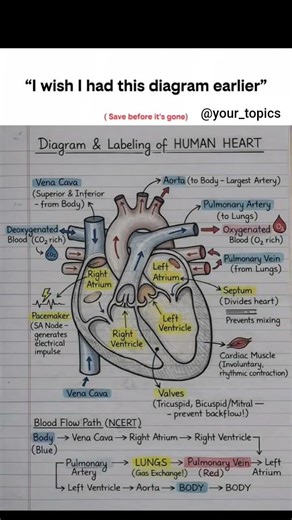 “I wish I had this diagram earlier”
( Save before it's gone)
@your_topics
Diagram & Labeling of HUMAN HEART
Vena Cava
(Superior & Inferior
- from Body)
Aorta (to Body - Largest Artery)
Pulmonary Artery
(to Lungs)
Deoxygenated
Blood (CO₂ rich)
CO₂
Oxygenated
Blood (O₂ rich)
O₂
Pulmonary Vein
(from Lungs)
Right
Atrium
Left
Atrium
Septum
(Divides heart)
Prevents mixing
Pacemaker
(SA Node -
generates
electrical
impulse
Right
Ventricle
Left
Ventricle
Cardiac Muscle
(Involuntary,
rhythmic contraction)
Vena Cava
Valves
(Tricuspid, Bicuspid/Mitral —
- prevent backflow!)
Blood Flow Path (NCERT)
Body → Vena Cava → Right Atrium → Right Ventricle
(Blue)
→ Pulmonary Artery → LUNGS (Gas Exchange!) → Pulmonary Vein (Red) → Left Atrium
→ Left Ventricle → Aorta → BODY → BODY